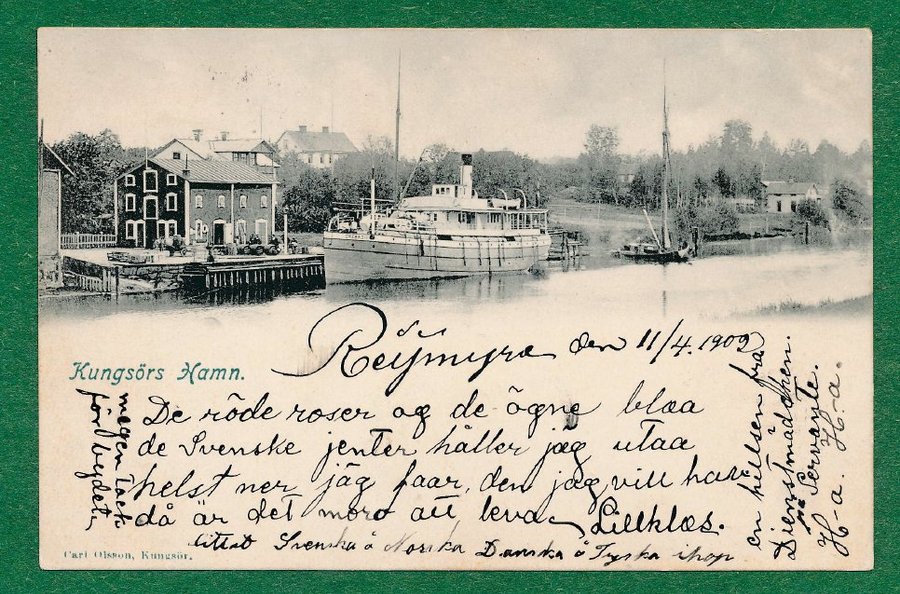 Kungsörs Hamn.
Reijmyra den 11/4. 1902
De röde roser og de ögne blaa
de Svenske jenter håller jag utaa
helst ner jäg faar, den jag vill hav
då är det moro att leva Lillklas.
littet Svenska å Norska Danska å Tyska ihop
megen Tack
för beydet
en hilsen fra
Dienstmädchen.
på Servante.
H-a. H-a.
Carl Olsson, Kungsör.